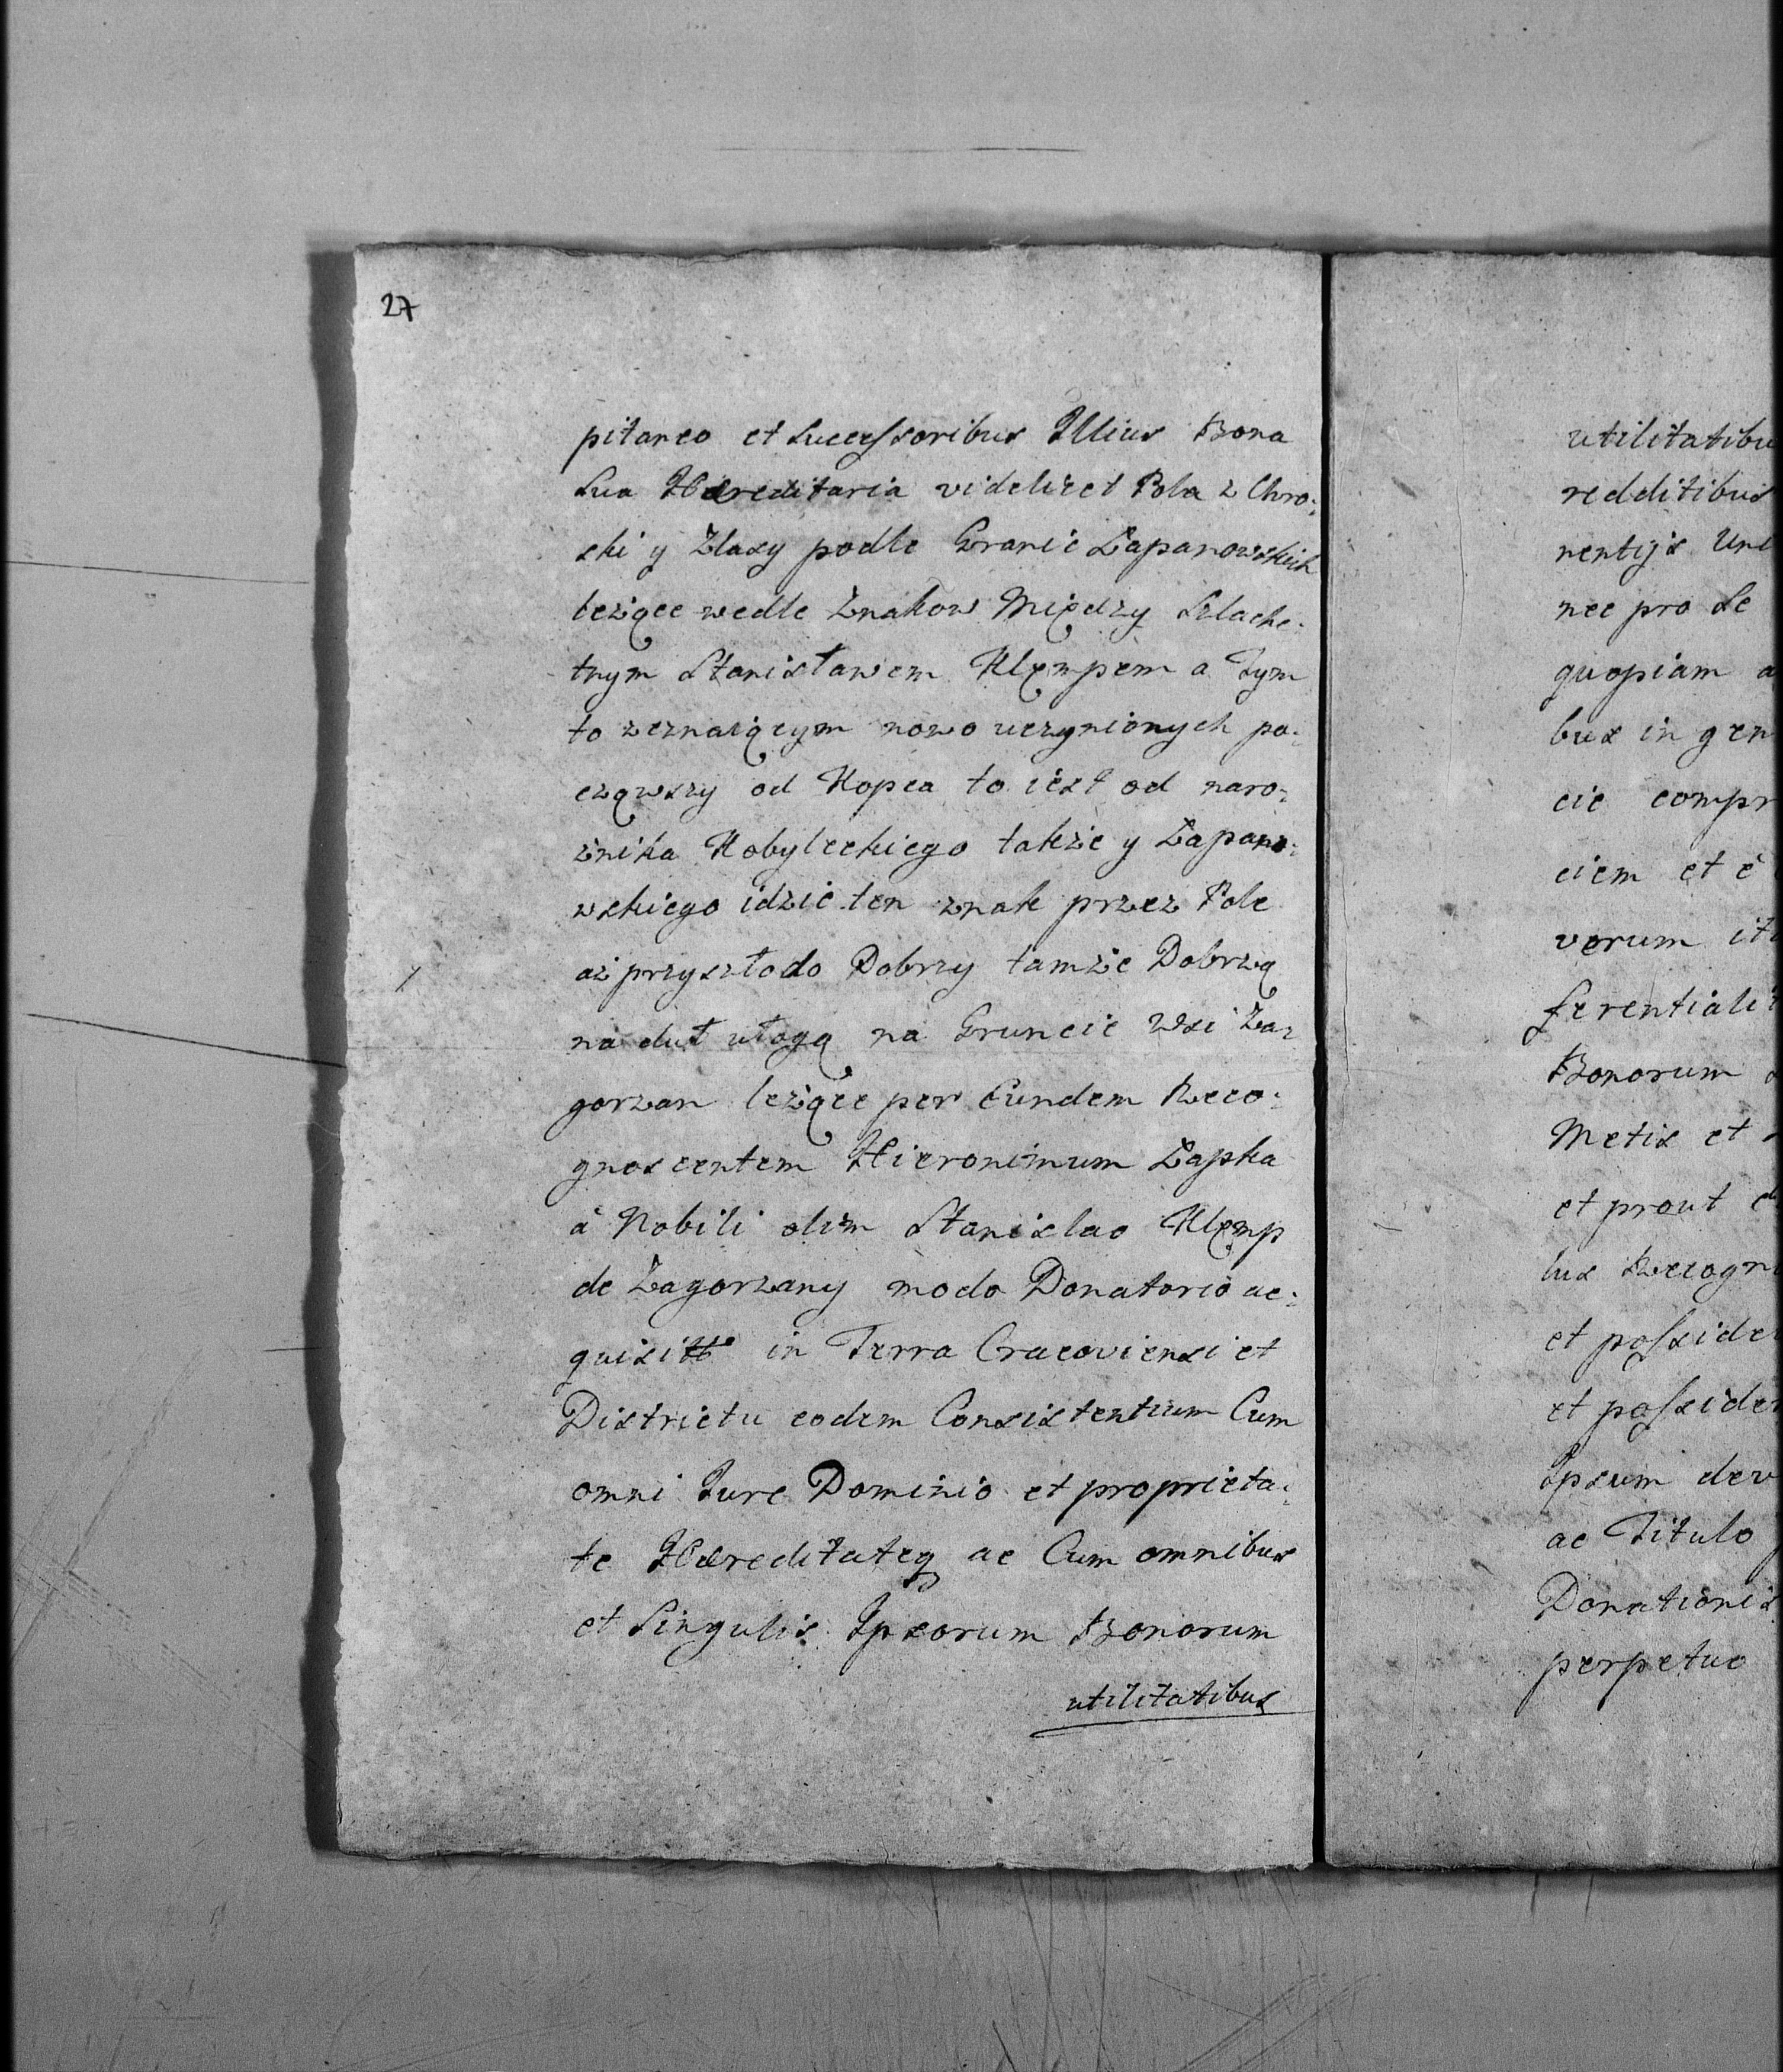 27
pitaneo et Successoribus Illius Bona
Sua Hæreditaria videlicet Pola z Chro:
ski y Zlasy podle Granic Łapanowskich
leżące wedle Znakow Między Szlache:
tnym Stanisławem Klempem a Tym
to zeznaiącym nowo uczynionych po:
cząwszy od Kopca to iest od naro:
żnika Kobyleckiego takze y Łapano:
wskiego idzie ten znak przez Pole
aż przyszło do Dobrzy tamże Dobrzą
na duł na Gruncie Wsi Za:
gorzan leżące per Eundem Reco:
gnoscentem Hieronimum Łapka
à Nobili olim Stanislao Klemp
de Zagorzany modo Donatorio ac:
in Terra Cracoviensi et
Districtu eodem Consistentium Cum
omni Jure Dominio et proprieta:
te Hæreditateq ac Cum omnibus
et Singulis Ipsorum Bonorum
utilitatibus
utilitatibu
redditibus
nentijs Uni
nec pro Se
quopiam a
bus in gen
cie compr
ciem et è
verum ita
ferentiali
Bonorum
Metis et
et prout
lus Recogn
et posside
et posside
Ipsum dev
ac Titulo
Donationis
perpetuo